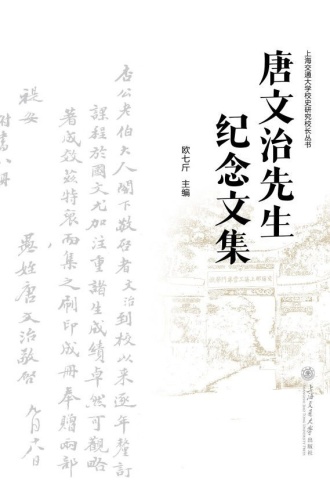 上海交通大学校史研究校长丛书
唐文治先生
纪念文集
欧七斤 主编
杏公老伯大人阁下敬启者文治到校以来逐年厘订
课程于国文尤加注重诸生成绩卓然可观略
著成效兹特裒而集之刷印成册奉赠两部
祗安
附书八册
愚侄唐文治敬启
九月十八日
上海交通大学出版社